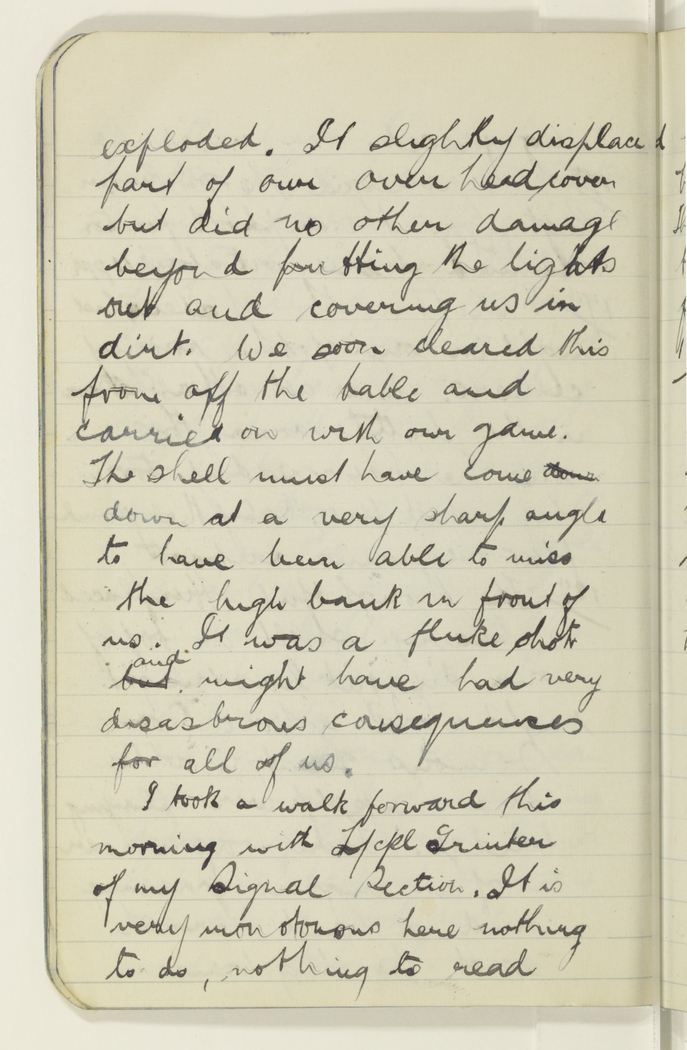 exploded. It slightly displaced
part of our over head cover
but did no other damage
beyond putting the lights
out and covering us in
dirt. We soon cleared this
from off the table and
carried on with our game.
The shell must have come down
down at a very sharp angle
to have been able to miss
the high bank in front of
us. It was a fluke shot
but and might have had very
disastrous consequences
for all of us.
I took a walk forward this
morning with L/cpl Grinter
of my Signal Section. It is
very monotonous here nothing
to do, nothing to read